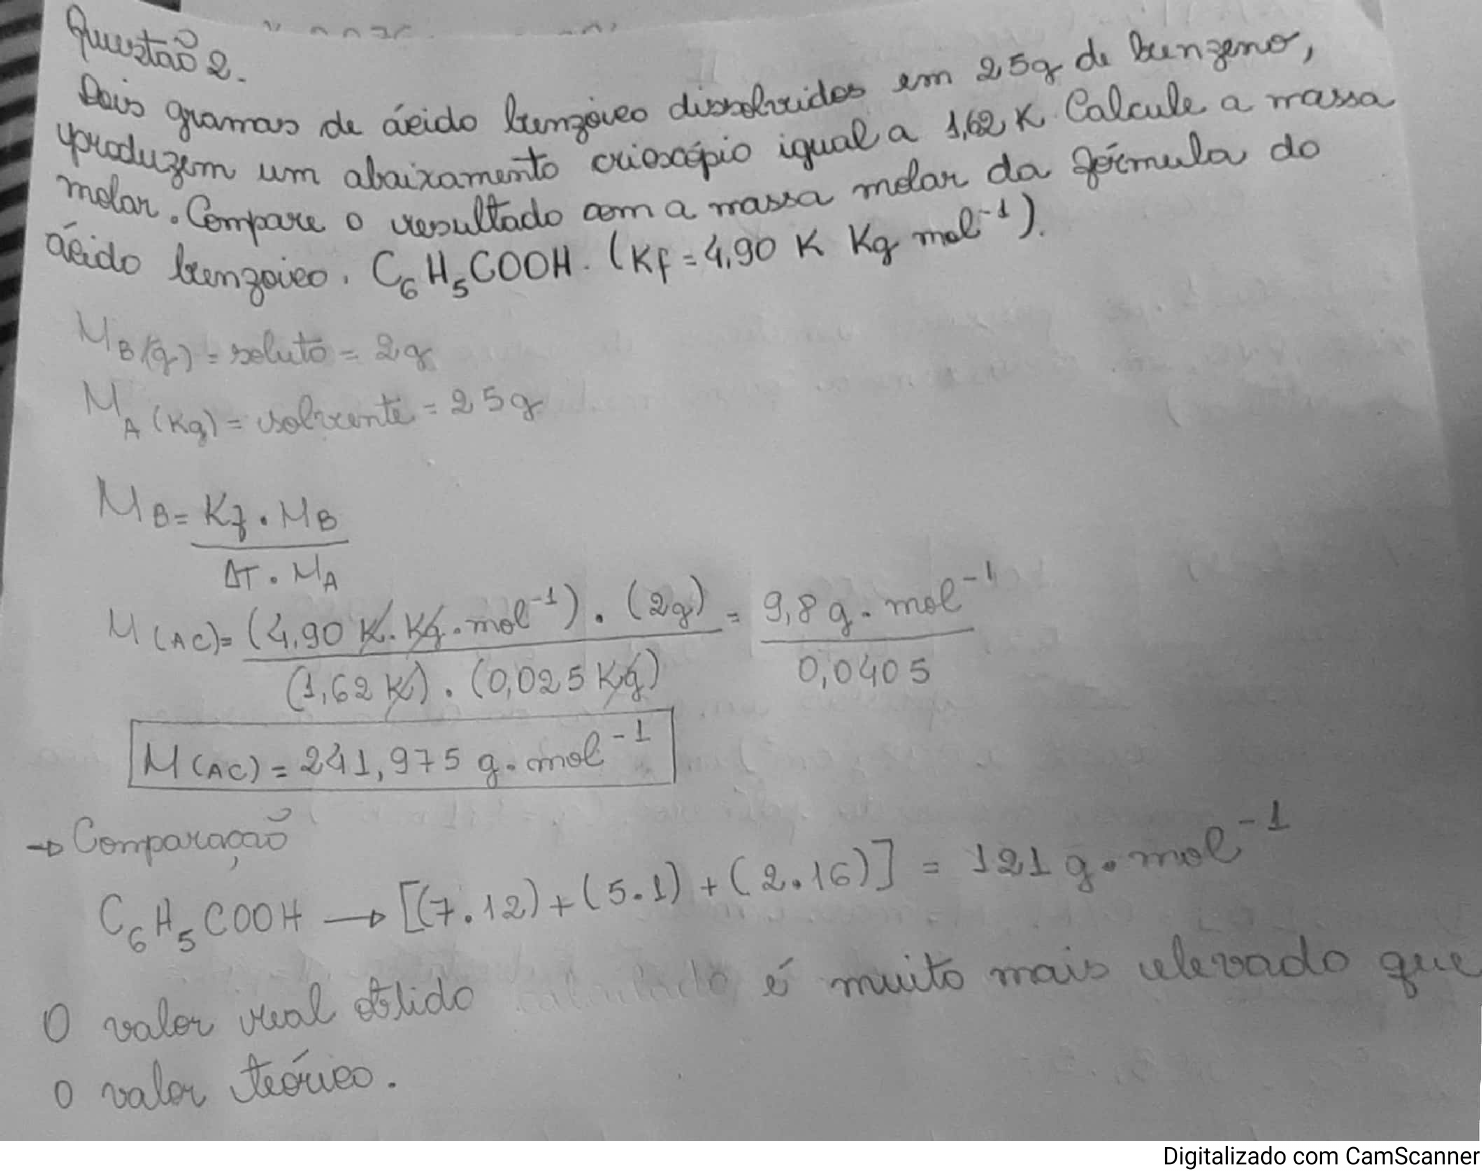 Questão 2.
Dois gramas de ácido benzóico dissolvidos em 25g de benzeno,
produzem um abaixamento crioscópio igual a 1,62 K. Calcule a massa
molar. Compare o resultado com a massa molar da fórmula do
ácido benzoico. C₆H₅COOH. (Kf = 4,90 K Kg mol⁻¹).
M B(g) = soluto = 2g
M A (Kg) = solvente = 25g
M B = Kf . M B / ΔT . M A
M (AC) = (4,90 K. Kg. mol⁻¹) . (2g) / (1,62 K) . (0,025 Kg) = 9,8 g. mol⁻¹ / 0,0405
M (AC) = 241,975 g. mol⁻¹
→ Comparação
C₆H₅COOH → [(7.12)+(5.1)+(2.16)] = 121 g. mol⁻¹
O valor real obtido é muito mais elevado que
o valor teórico.
Digitalizado com CamScanner